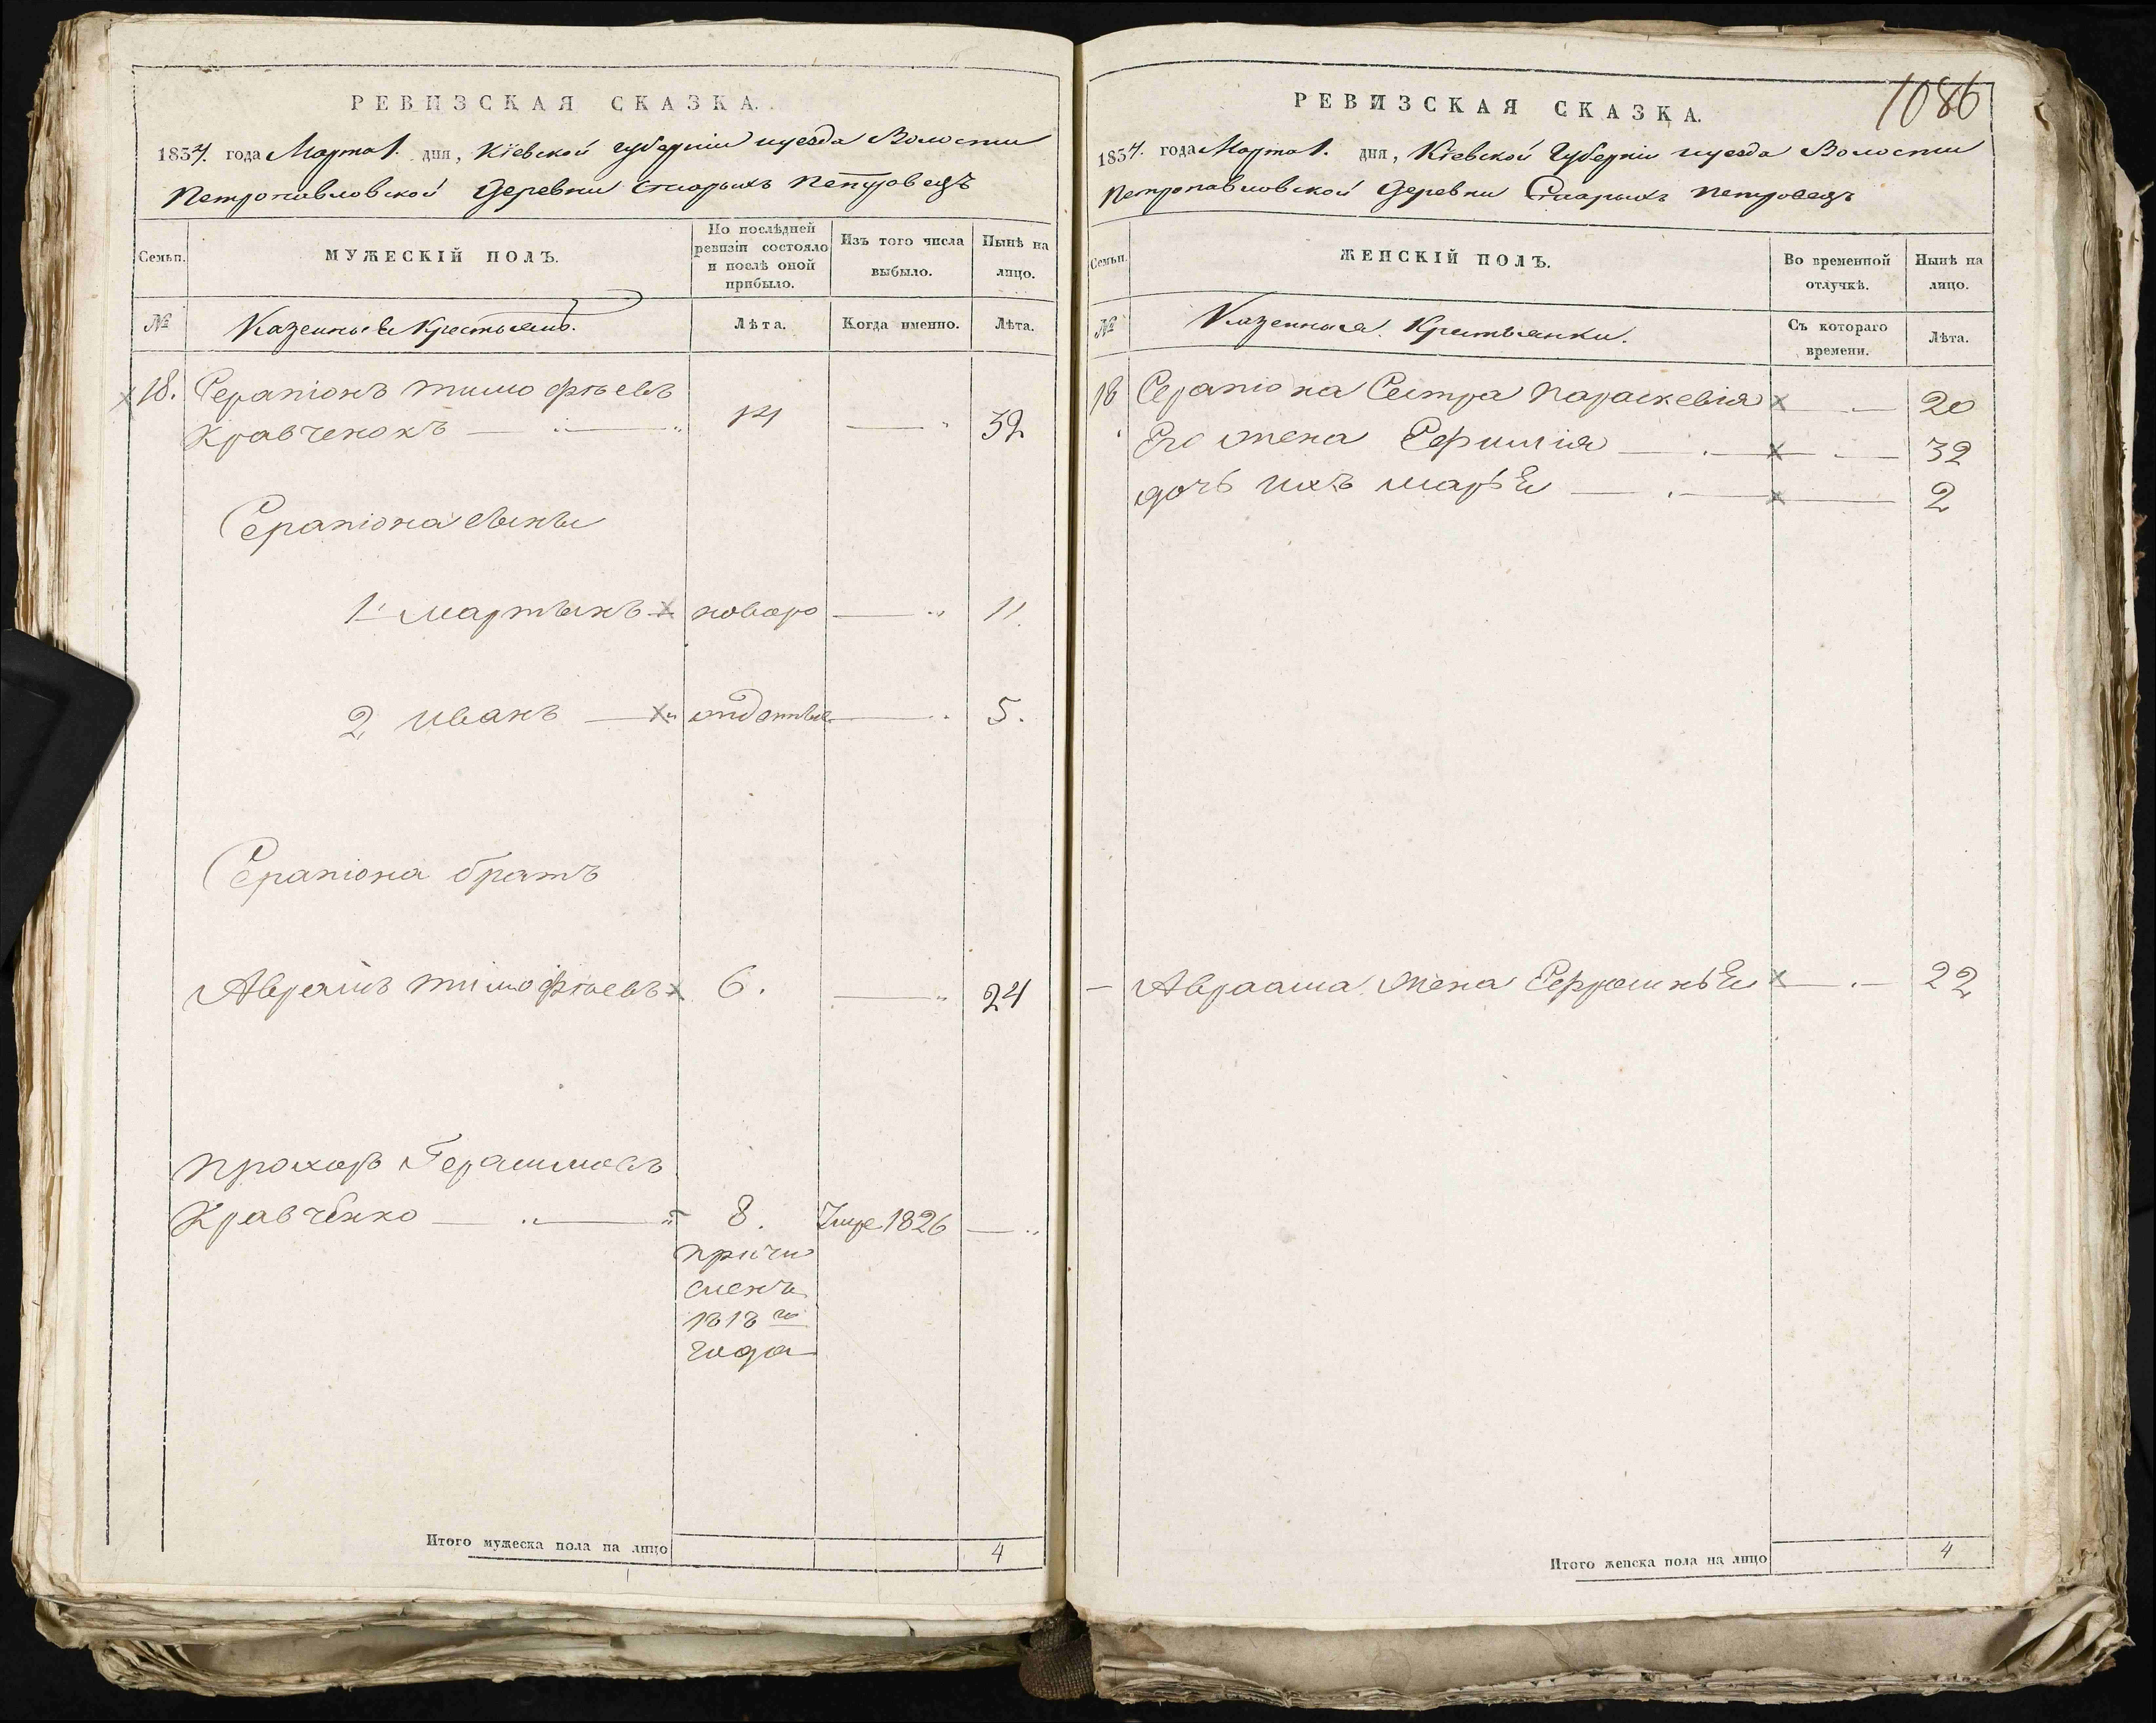 РЕВИЗСКАЯ СКАЗКА.
1834. года Марта 1. дня, Кіевской губерніи и уезда Волости
Петропавловской деревни Старыхъ Петровецъ
Семьи.
МУЖЕСКІЙ ПОЛЪ.
По послѣдней
ревизіи состояло
и послѣ оной
прибыло.
Изъ того числа
выбыло.
Нынѣ на
лицо.
№
Казенные Крестьянѣ.
Лѣта.
Когда именно.
Лѣта.
18. Серапіонъ тимофѣевъ
Кравченокъ 14 32
Серапіона сыны
1 мартынъ новоро 11.
2 иванъ 5.
Серапіона братъ
Аврамъ тимофѣевъ 6. 24
прохоръ Герасимовъ
Кравченко 8. 1826
причи
сленъ
1818го
года
Итого мужеска пола на лицо 4
РЕВИЗСКАЯ СКАЗКА.
1086
1834. года Марта 1. дня, Кіевской Губерніи и уезда Волости
Петропавловской деревни Старыхъ Петровецъ
Семьи.
ЖЕНСКІЙ ПОЛЪ.
Во временной
отлучкѣ.
Нынѣ на
лицо.
№
Казенныя Крестьянки.
Съ котораго
времени.
Лѣта.
18 Серапіона Сестра параскевія 20
Его жена Ефимія 32
дочь ихъ марѣя 2
Авраама жена Ефросинѣя 22
Итого женска пола на лицо 4